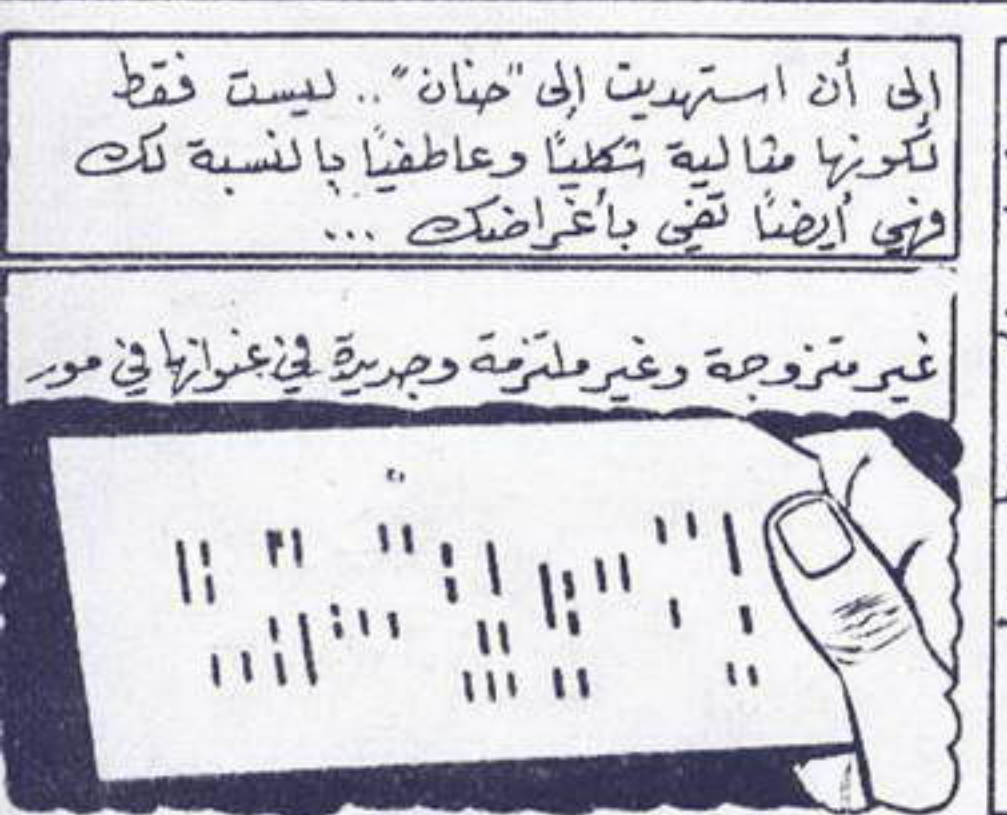 إلى أن استهديت إلى "حنان".. ليست فقط
لكونها مثالية شكليًا وعاطفيًا بالنسبة لك
فهي أيضًا تفي بأغراضك ...
غير متزوجة وغير ملتزمة وجديدة في عنوانها في مور